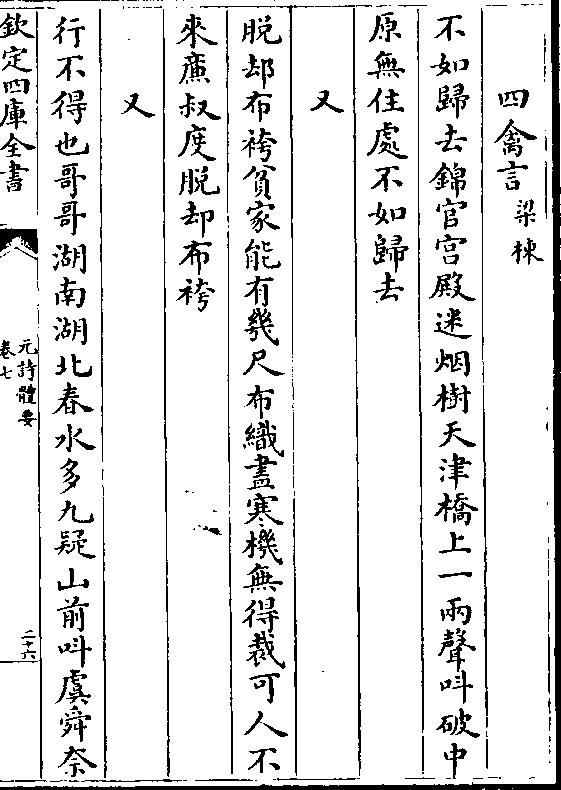 四禽言 梁棟
不如歸去錦官宫殿迷烟樹天津橋上一兩聲叫破中
原無住處不如歸去
又
脱却布袴貧家能有幾尺布織盡寒機無得裁可人不
來廉叔度脱却布袴
又
行不得也哥哥湖南湖北春水多九疑山前叫虞舜奈
欽定四庫全書
元詩體要
卷七
二十六